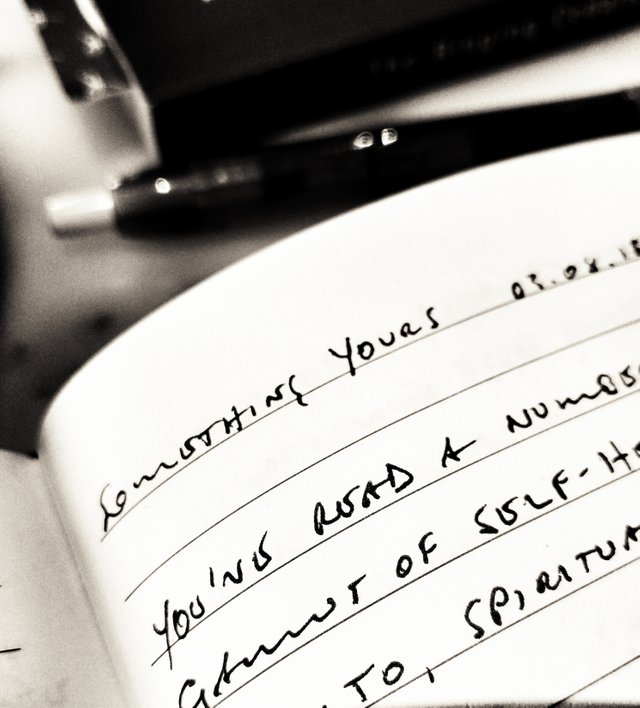 SOMETHING YOURS 03.08.18
YOU'VE READ A NUMBE
GAMUT OF SELF-HE
TO, SPIRITUA